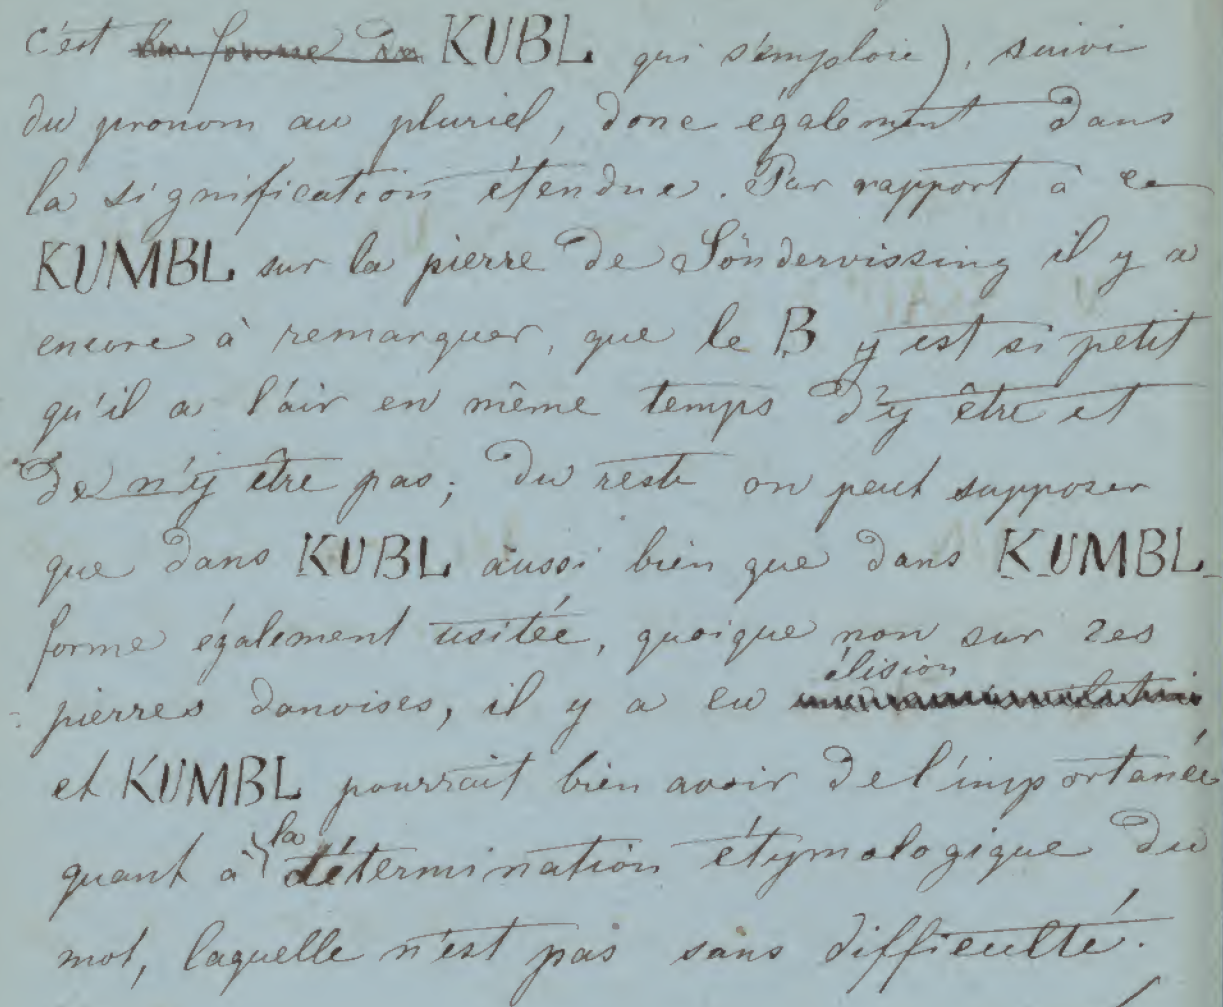 c'est KUBL qui s'emploie), suivi
du pronom au pluriel, donc également dans
la signification étendue. Par rapport à ce
KUMBL sur la pierre de Söndervissing il y a
encore à remarquer, que le B y est si petit
qu'il a l'air en même temps d'y être et
de n'y être pas; du reste on peut supposer
que dans KUBL aussi bien que dans KUMBL
forme également usitée, quoique non sur les
élision
pierres danoises, il y a eu
et KUMBL pourrait bien avoir de l'importance
la
quant à détermination étymologique du
mot, laquelle n'est pas sans difficulté.